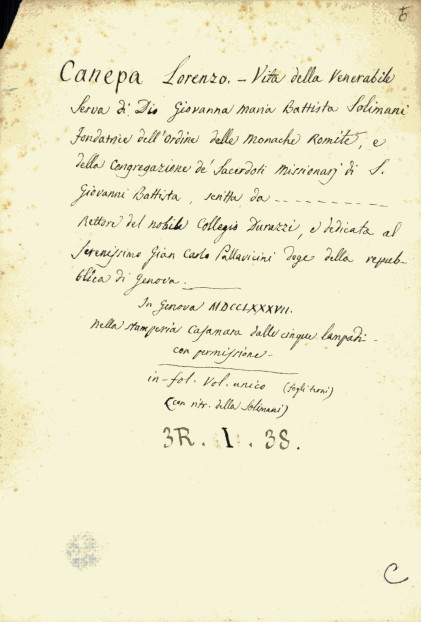 Canepa Lorenzo. – Vita della Venerabile
Serva di Dio Giovanna Maria Battista Solimani
fondatrice dell'Ordine delle Monache Romite, e
della Congregazione de' Sacerdoti Missionarj di S.
Giovanni Battista, scritta da – – – – – – – – – –
Rettore del nobile Collegio Durazzi, e dedicata al
Serenissimo Gian Carlo Pallavicini doge della repub-
blica di Genova.
In Genova MDCCLXXXVII.
Nella stamperia Casamara dalle cinque lampadi –
con permissione –
in-fol. Vol. unico (fogli tomi)
(con ritr. della Solimani)
3R. I. 38.
C